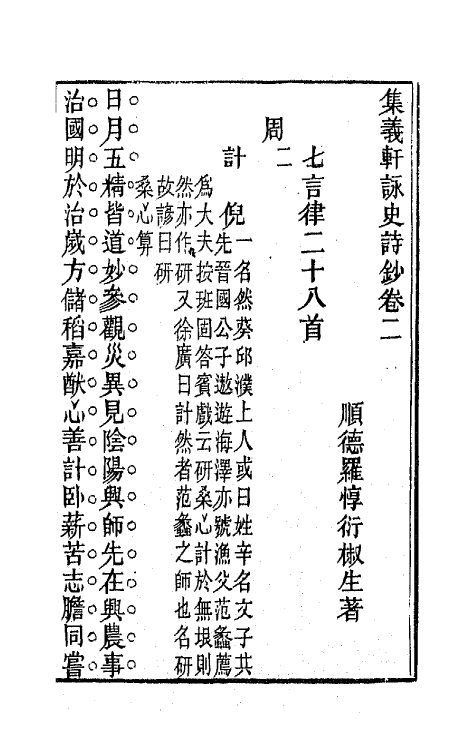 集義軒詠史詩鈔卷二
順德羅惇衍椒生著
七言律二十八首
周二
計倪
一名然葵邱濮上人或曰姓辛名文子其
先晉國公子遨遊海澤亦號漁父范蠡薦
爲大夫按班固答賓戲云研桑心計於無垠則
然亦作研又徐廣曰計然者范蠡之師也名研
故諺曰研
桑心算
日月五精皆道妙參觀災異見陰陽興師先在興農事
治國明於治歲方儲稻嘉猷心善計卧薪苦志膽同嘗